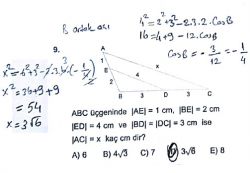 B ortak açı
4² = 2² + 3² - 2.3.2.CosB
16 = 4 + 9 - 12.CosB
CosB = - 3/12 = - 1/4
9.
x² = 6² + 3² - 2.3.6(-1/4)
x² = 36 + 9 + 9
= 54
x = 3√6
A
1
E
4
x
2
B
3
D
3
C
ABC üçgeninde |AE| = 1 cm, |BE| = 2 cm
|ED| = 4 cm ve |BD| = |DC| = 3 cm ise
|AC| = x kaç cm dir?
A) 6 B) 4√3 C) 7 D) 3√6 E) 8